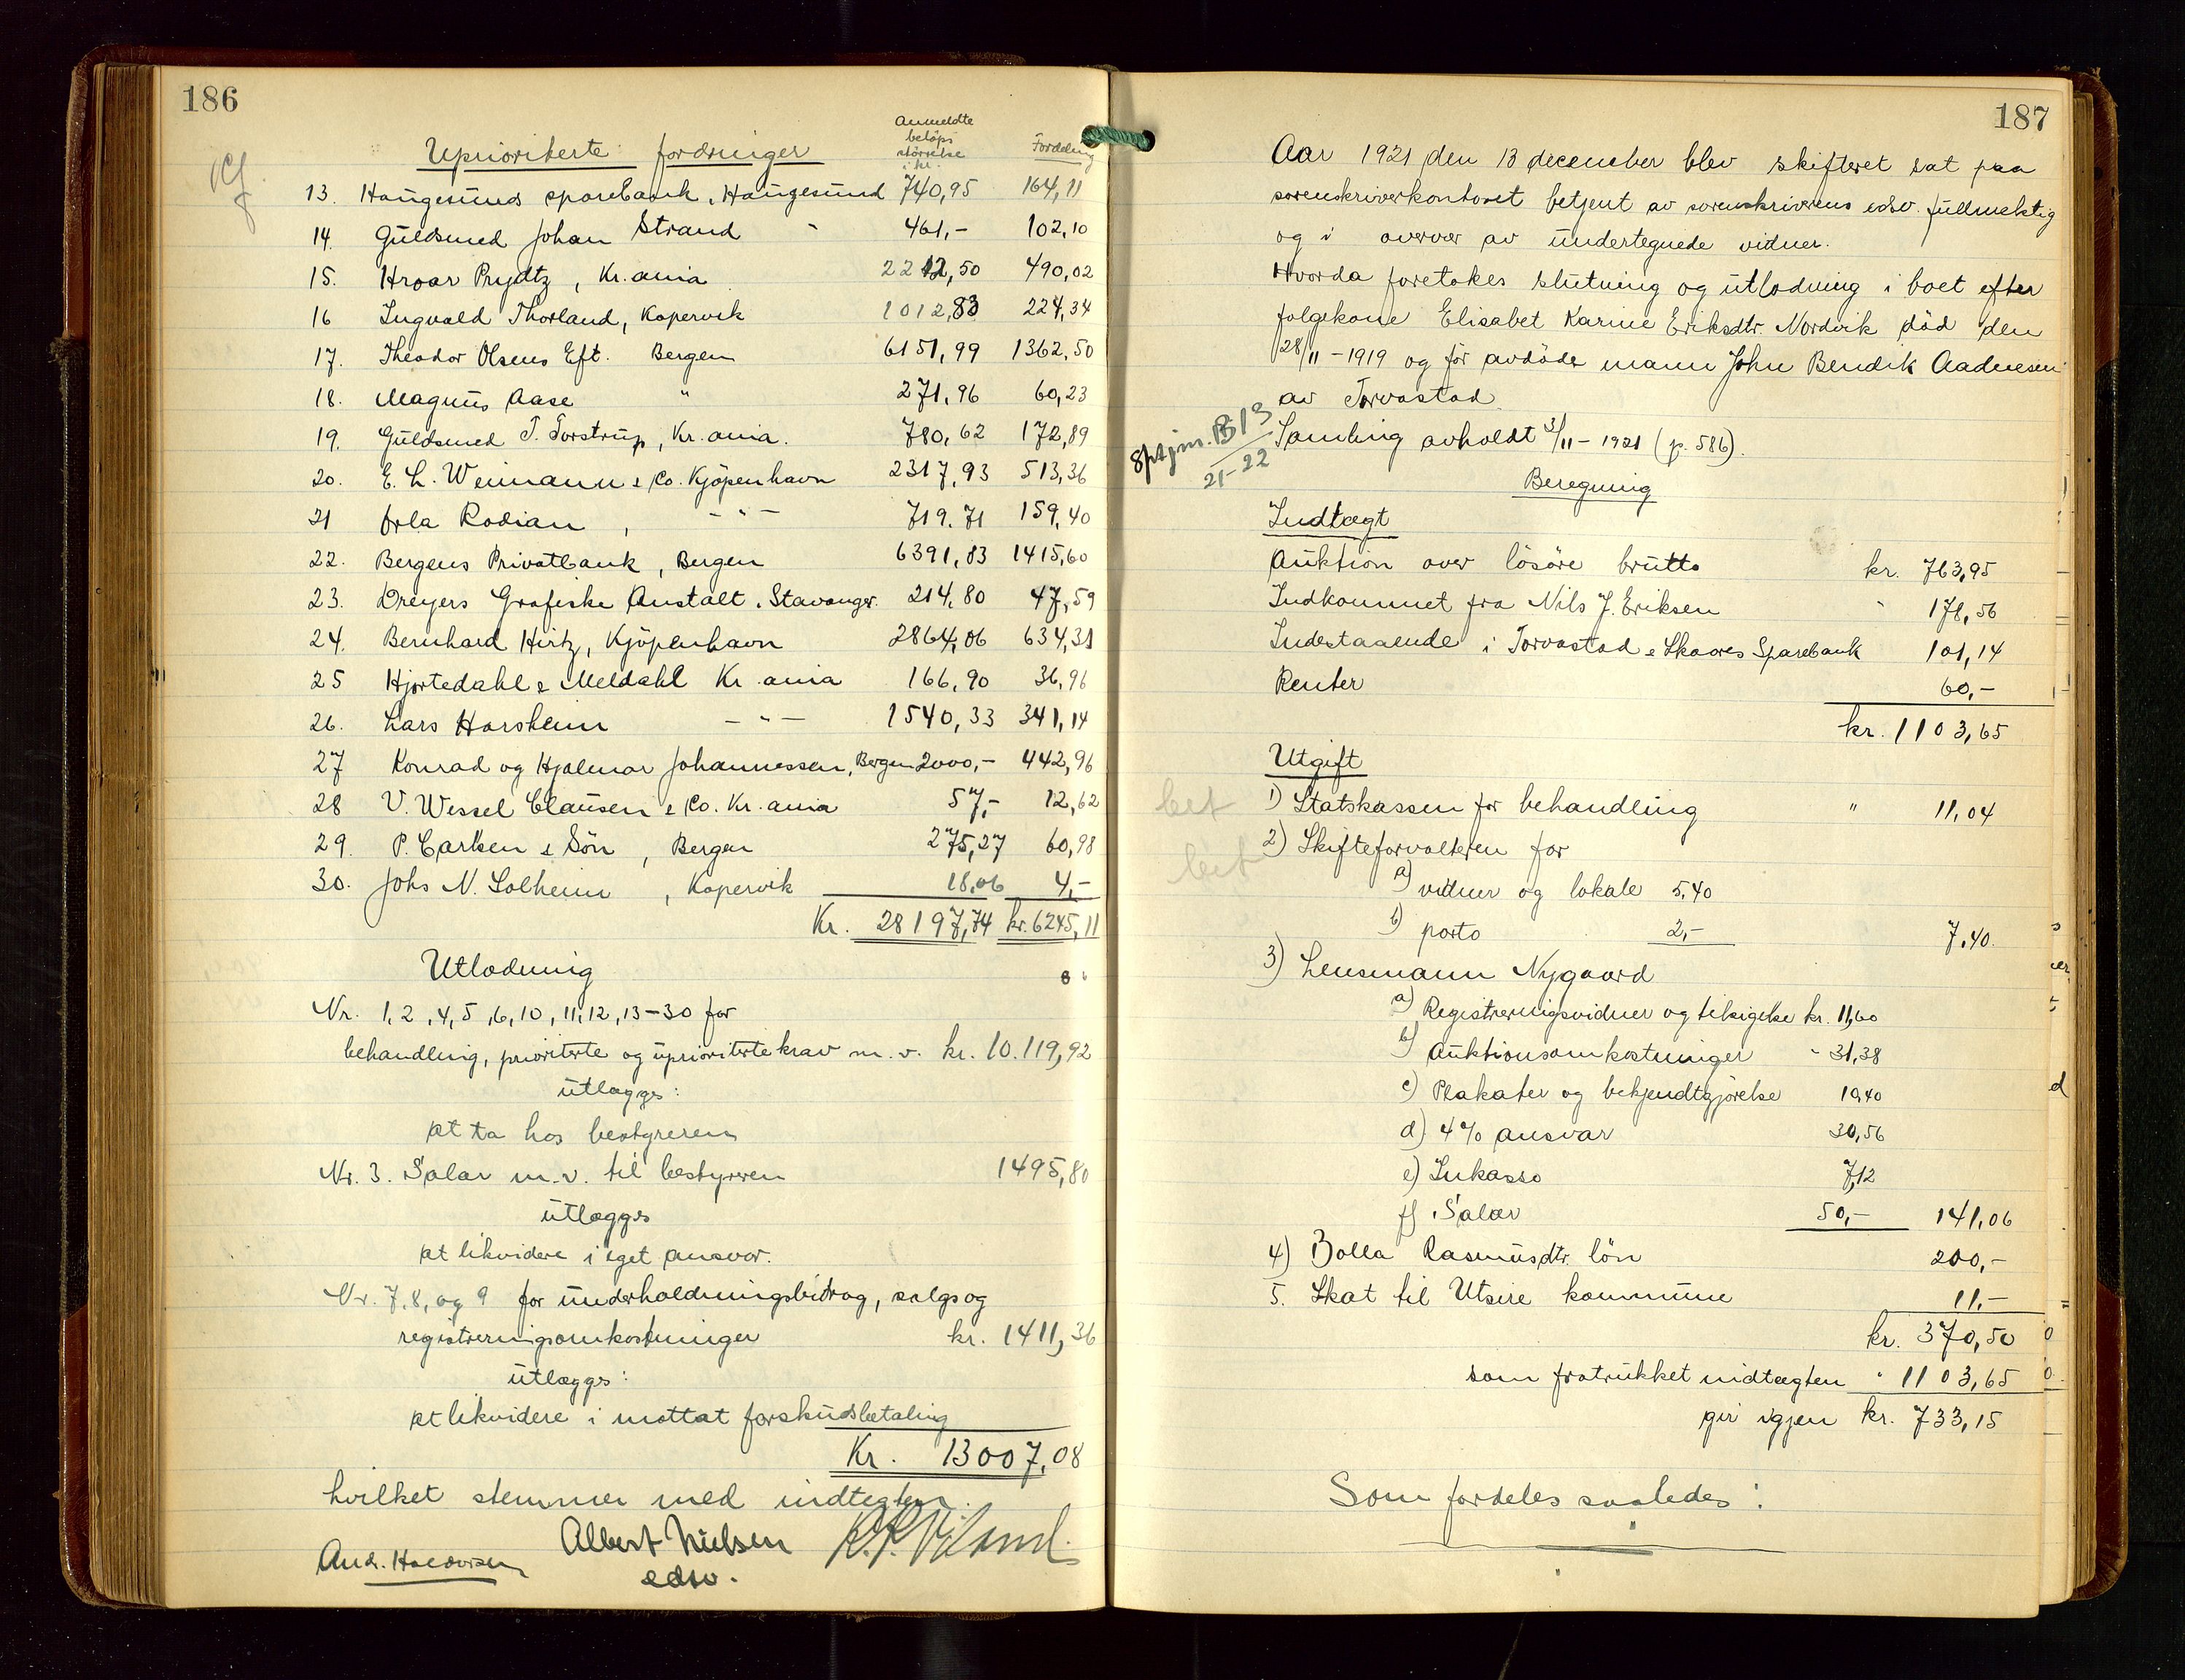 186
Uprioriterte fordringer
Anmeldte
beløps
størrelse
kr.
Fordeling
13. Haugesunds sparebank, Haugesund 740,95 164,11
14. Guldsmed Johan Strand " 461,- 102,10
15. Hroar Prydtz, Kr.ania 2212,50 490,02
16 Ingvald Thorland, Kopervik 1012,83 224,34
17. Theodor Olsens Eft. Bergen 6151,99 1362,50
18. Magnus Aase " 271,96 60,23
19. Guldsmed T. Torstrup, Kr.ania. 780,62 172,89
20. E. L. Weimann & Co. Kjöpenhavn 2317,93 513,36
21 Orla Rodian, - " - 719.71 159,40
22. Bergens Privatbank, Bergen 6391,83 1415,60
23. Dreyers Grafiske Anstalt, Stavanger. 214,80 47,59
24. Bernhard Hirtz, Kjöpenhavn 2864,06 634,31
25 Hjortedahl & Meldahl Kr.ania 166,90 36,96
26. Lars Harsheim - " - 1540,33 341,14
27 Konrad og Hjalmar Johannessen, Bergen 2000,- 442,96
28 V. Wessel Clausen & Co. Kr.ania 57,- 12,62
29. P. Carlsen & Sön, Bergen 275,27 60,98
30. Johs N. Solheim, Kopervik 18,06 4,-
Kr. 28197,74 kr. 6245,11
Utlodning
Nr. 1, 2, 4, 5, 6, 10, 11, 12, 13-30 for
behandling, prioriterte og uprioriterte krav m.v. kr. 10.119,92
utlægges:
at ta hos bestyreren
Nr. 3. Salær m.v. til bestyreren 1495,80
utlægges
at likvidere i eget ansvar.
Nr. 7, 8, og 9 for underholdningsbidrag, salgs og
registreringsomkostninger kr. 1411,36
utlægges:
at likvidere i mottat forskudsbetaling
Kr. 13007,08
hvilket stemmer med indtegten.
Albert Nielsen
edsv.
187
Aar 1921 den 13 december blev skifteret sat paa
sorenskriverkontoret betjent av sorenskriverens edsv. fullmektig
og i overvær av undertegnede vidner.
Hvorda foretokes slutning og utlodning i boet efter
folgekone Elisabet Karine Eriksdtr. Nordvik död den
28/11-1919 og för avdöde mann John Bendik Aadnesen
av Torvastad.
Samling avholdt 3/11-1921 (p. 586).
B13
21-22
Beregning
Indtægt
Auktion over lösöre brutto kr. 763,95
Indkommet fra Nils J. Eriksen " 178,56
Indestaaende i Torvastad & Skaares Sparebank 101,14
Renter 60,-
kr. 1103,65
Utgift
bet 1) Statskassen for behandling " 11,04
bet 2) Skifteforvalteren for
a) vidner og lokale 5,40
b) porto 2,- 7,40.
3) Lensmann Nygaard
a) Registreringsvidner og tilsigelse kr. 11,60
b) Auktionsomkostninger " 31,38
c) Plakater og bekjendtgjörelse 10,40
d) 4% ansvar 30,56
e) Inkasso 7,12
f) Salær 50,- 141,06
4) Bolla Rasmusdtr. lön 200,-
5. Skat til Utsire kommune 11,-
kr. 370,50
som fratrukket indtægten " 1103,65
gir igjen kr. 733,15
Som fordeles saaledes: